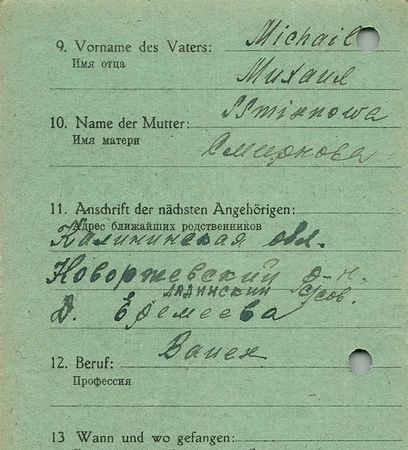 9. Vorname des Vaters: Michail
Имя отца
Михаил
10. Name der Mutter:
Имя матери
Смирнова
11. Anschrift der nächsten Angehörigen:
Адрес ближайших родственников
Калининская обл.
Новоржевский р-н.
Ладинский с/сов.
д. Еремеева
12. Beruf: Bauer
Профессия
13 Wann und wo gefangen: